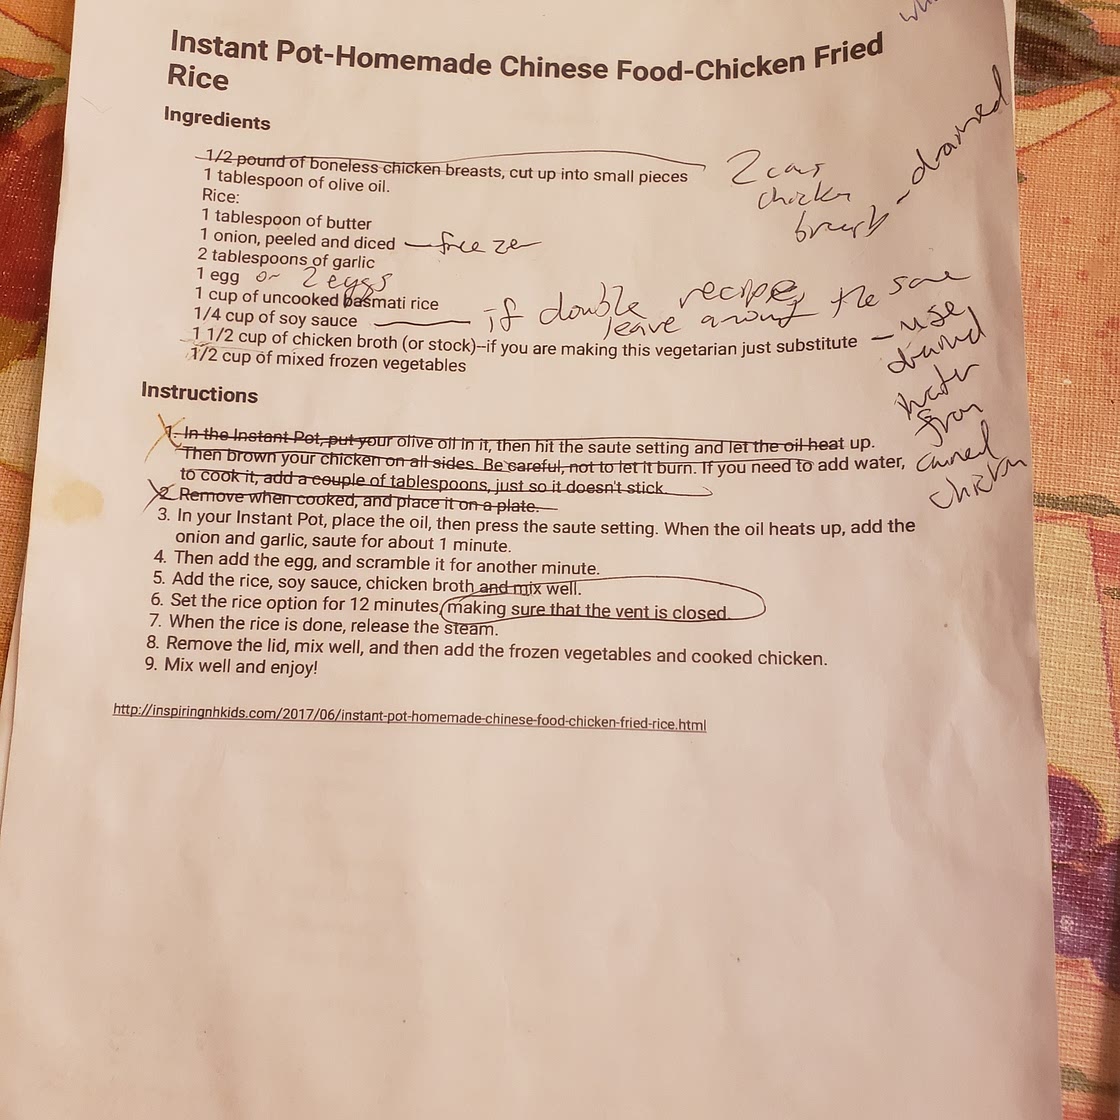 Instant Pot-Homemade Chinese Food-Chicken Fried
Rice
Ingredients
1/2 pound of boneless chicken breasts, cut up into small pieces
2 cans
chicken
breasts - drained
1 tablespoon of olive oil.
Rice:
1 tablespoon of butter
1 onion, peeled and diced — freeze
2 tablespoons of garlic
1 egg or 2 eggs
1 cup of uncooked basmati rice
1/4 cup of soy sauce — if double recipe
leave amount the same
1 1/2 cup of chicken broth (or stock)--if you are making this vegetarian just substitute
— use
drained
water
from
canned
chicken
1/2 cup of mixed frozen vegetables
Instructions
1. In the Instant Pot, put your olive oil in it, then hit the saute setting and let the oil heat up.
Then brown your chicken on all sides. Be careful, not to let it burn. If you need to add water,
to cook it, add a couple of tablespoons, just so it doesn't stick.
2. Remove when cooked, and place it on a plate.
3. In your Instant Pot, place the oil, then press the saute setting. When the oil heats up, add the
onion and garlic, saute for about 1 minute.
4. Then add the egg, and scramble it for another minute.
5. Add the rice, soy sauce, chicken broth and mix well.
6. Set the rice option for 12 minutes, making sure that the vent is closed.
7. When the rice is done, release the steam.
8. Remove the lid, mix well, and then add the frozen vegetables and cooked chicken.
9. Mix well and enjoy!
http://inspiringnhkids.com/2017/06/instant-pot-homemade-chinese-food-chicken-fried-rice.html